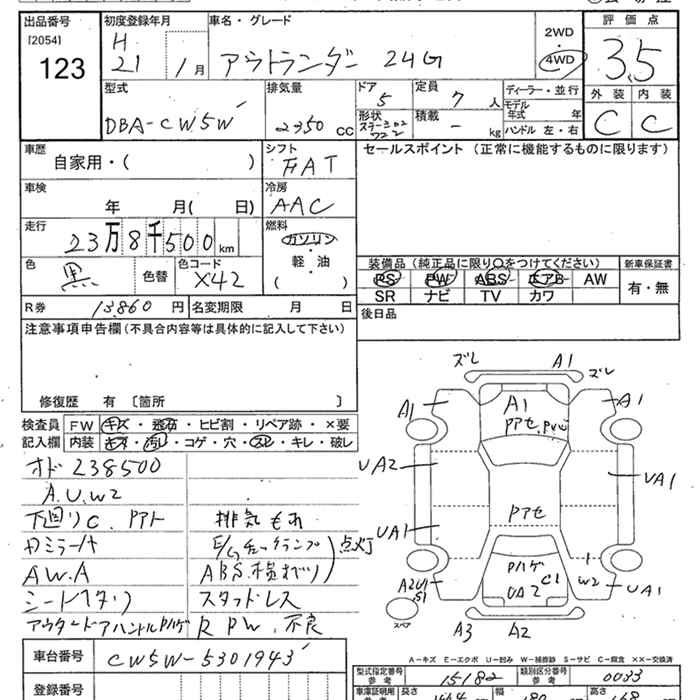 出品番号 初度登録年月 車名・グレード 2WD 評価点
[2054] H
123 21 1月 アウトランダー 24G 4WD 3.5
型式 排気量 ドア 定員 ディーラー・並行 外装 内装
5 7人 モデル年式 年
DBA-CW5W 2350 CC 形状 ステーションワゴン 積載 - kg ハンドル 左・右 C C
車歴 シフト セールスポイント (正常に機能するものに限ります)
自家用・( ) FAT
車検 冷房
年 月( 日) AAC
走行 燃料
23万8千500km ガソリン
色 色コード 軽・油 装備品(純正品に限り○をつけてください) 新車保証書
黒 色替 X42 ( ) PS PW ABS エアB AW 有・無
SR ナビ TV カワ
R券 13,860円 名変期限 月 日 後日品
注意事項申告欄(不具合内容等は具体的に記入して下さい)
修復歴 有 〔箇所 〕
検査員 FW キズ・飛石・ヒビ割・リペア跡・×要
記入欄 内装 キズ・汚レ・コゲ・穴・スレ・キレ・破レ
オド 238500
A.U.W2
下回りC.
排気もれ
E/Gチェックランプ 点灯
AW.A
ABS横すべり
シートヘタリ
スタッドレス
アウタードアハンドルPハゲ
R PW.不良
ズレ A1 ズレ
A1 A1 A1
Pアセ.
UA2 UA1
Pアセ
UA1
Pハゲ C1
UA2 W2 UA1
A2U1
S1
スペア
A3 A2
車台番号 CW5W-5301943
A-キズ E-エクボ U-凹み W-補修跡 S-サビ C-腐食 XX-交換済
型式指定番号 参考 15182 類別区分番号 参考 0033
登録番号
車庫証明用 長さ 幅 180 高さ 168